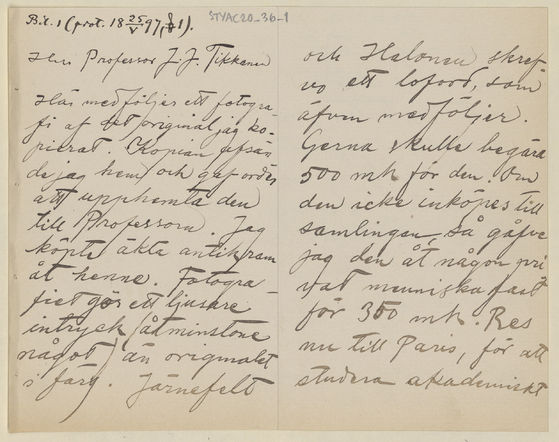 Bil. 1 (prot. 18 25/V 97, § 1).
STYAC20_36_1
Herr Professor J. J. Tikkanen
Här medföljer ett fotogra-
fi af det original jag ko-
pierat. Kopian afsän
de jag hem och gaf order
att upphemta den
till Professorn. Jag
köpte äkta antik ram
åt henne. Fotogra
fiet gör ett ljusare
intryck (åtminstone
något) än originalet
i färg. Järnefelt
och Halonen skref
vo ett loford, som
äfven medföljer.
Gerna skulle begära
500 mk för den. Om
den icke inköpes till
samlingen, så gåfve
jag den åt någon pri
vat menniska fast
för 350 mk. Res
nu till Paris, för att
studera akademiskt